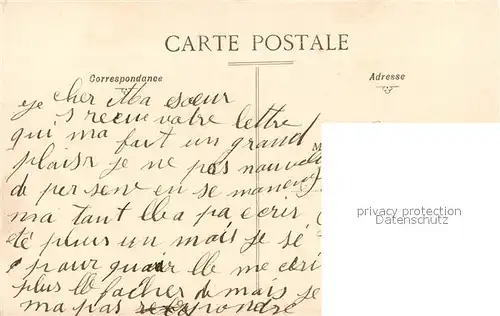 CARTE POSTALE
Correspondance
Adresse
cher Ma sœur
recue votre lettre
qui ma fait un grand
plaisir je ne pas nouvelle
de personne en se
ma tant Ela pa ecris
été plus un mois je sé
pour quoir lle me ecri
plus lle facher de mais je
ma pas repondre
M
privacy protection
Datenschutz